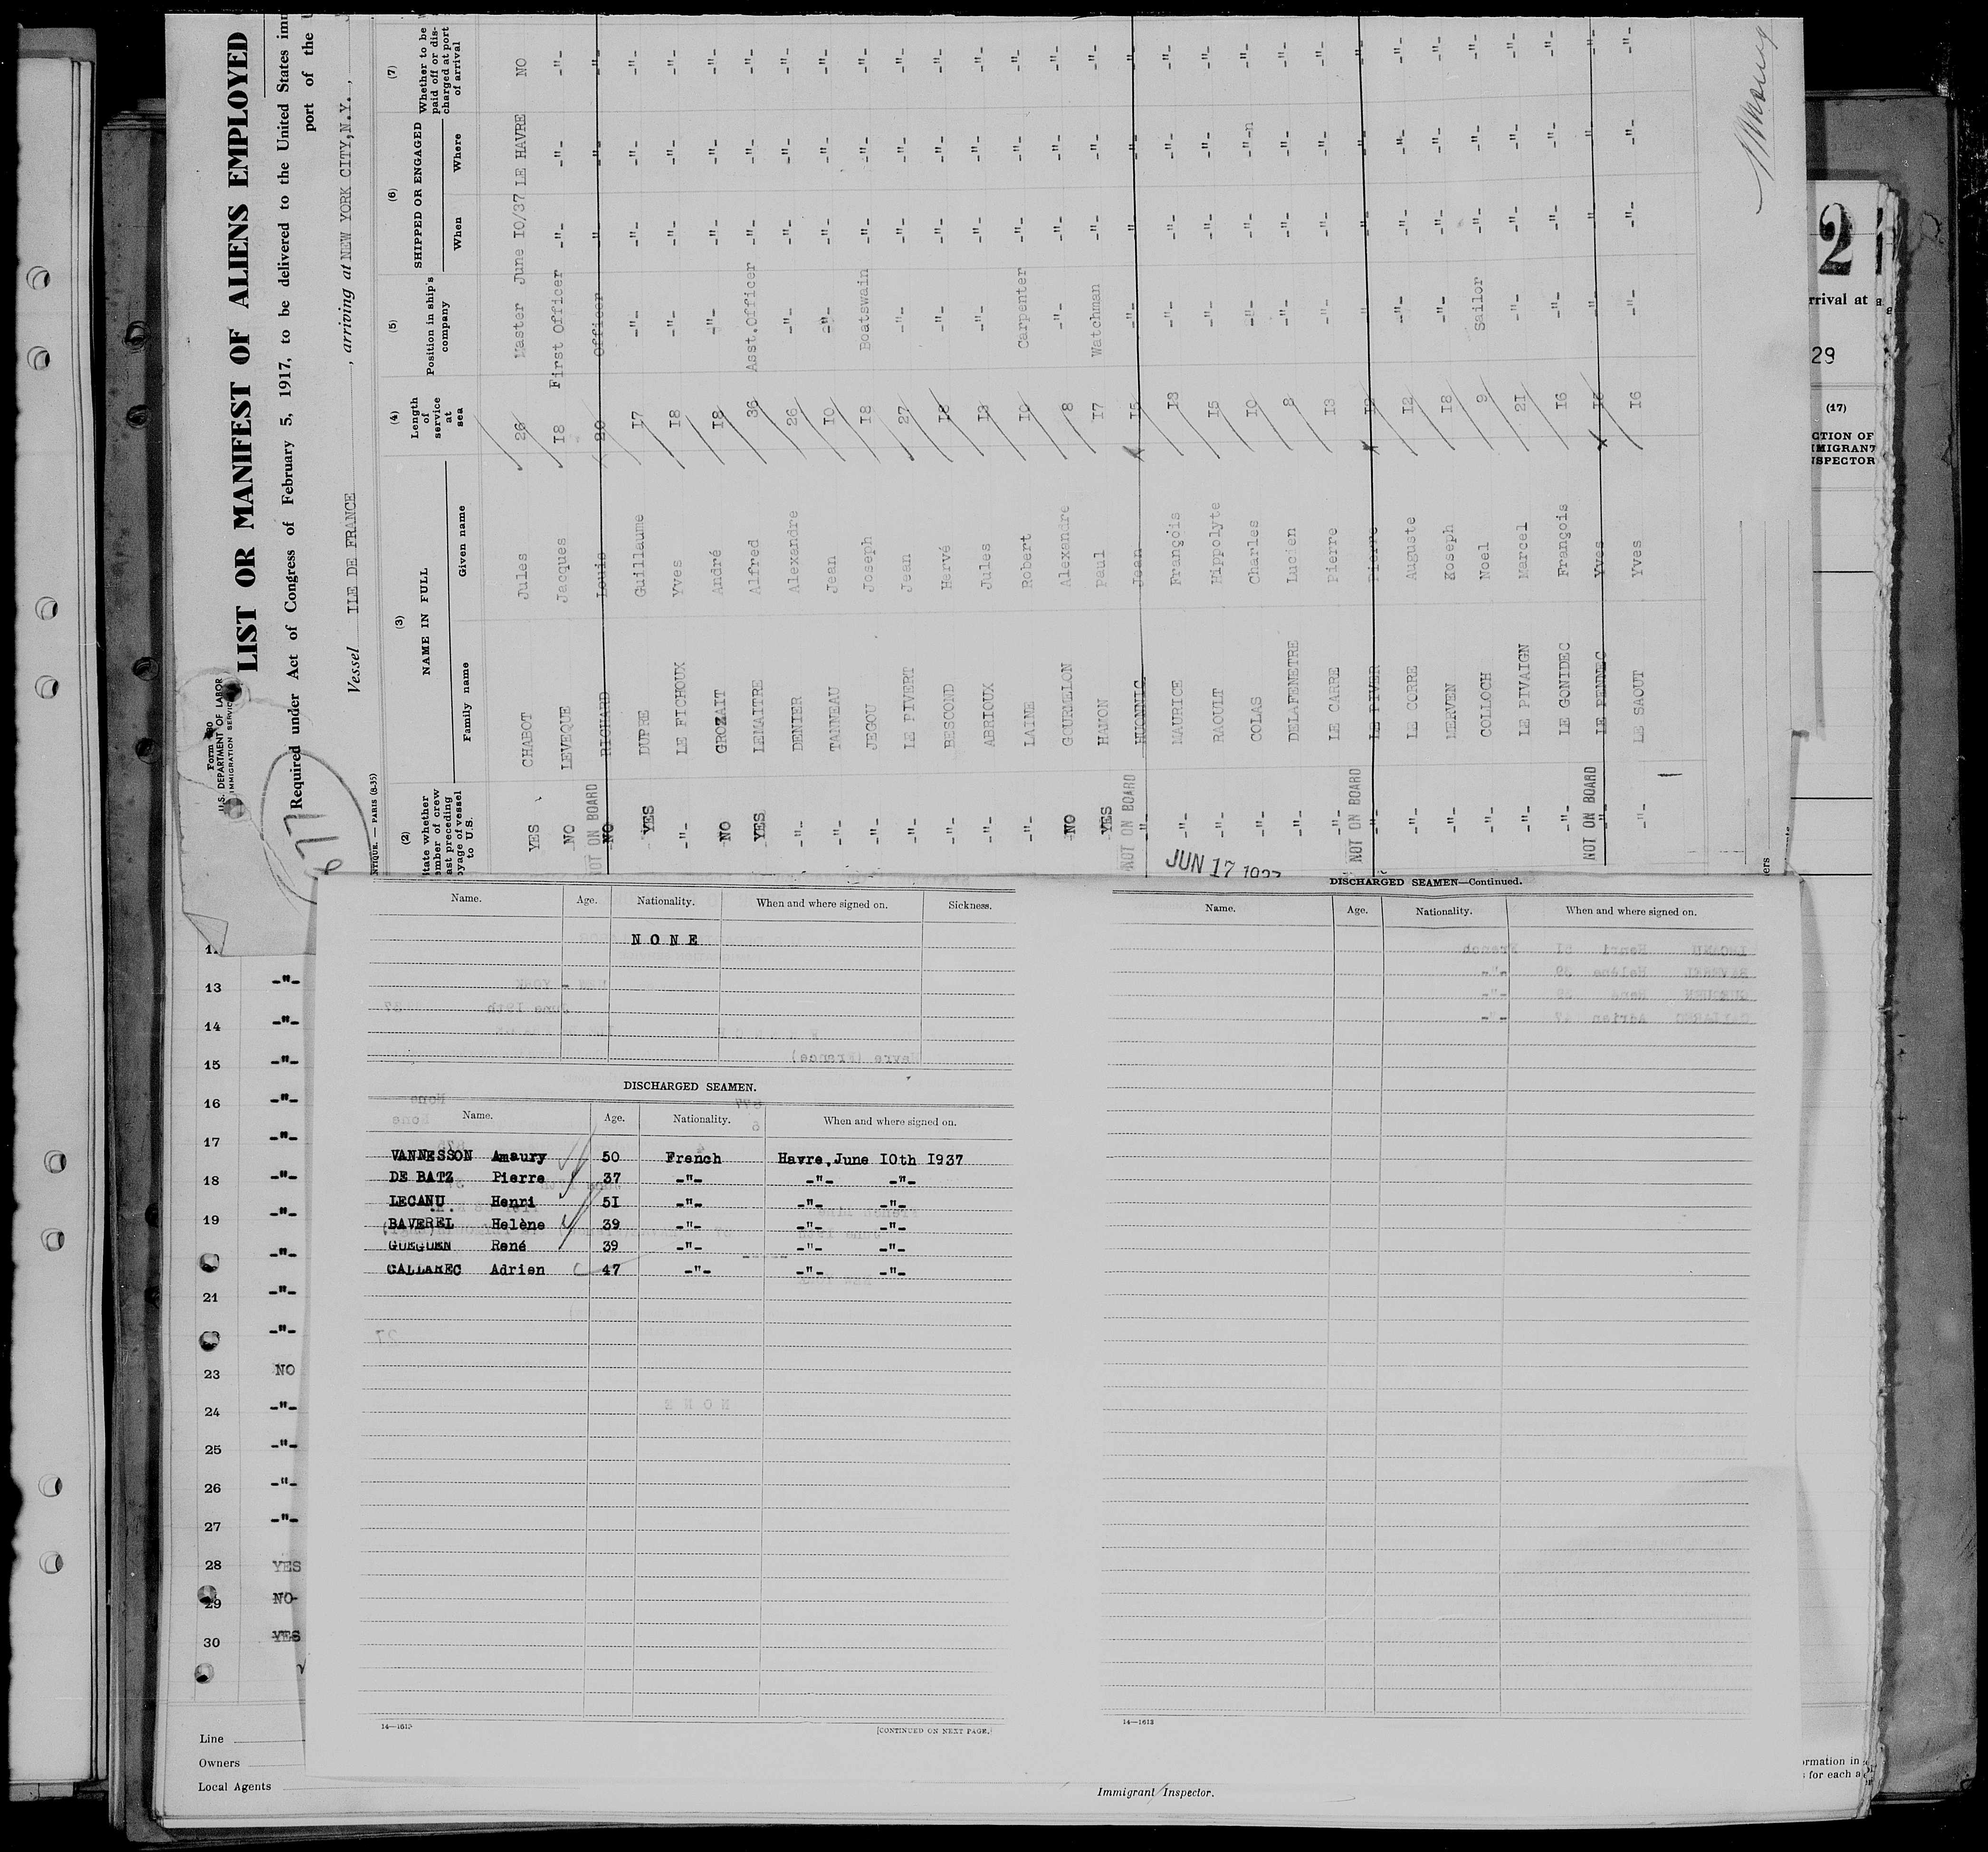 Form 680
U.S. DEPARTMENT OF LABOR
IMMIGRATION SERVICE
LIST OR MANIFEST OF ALIENS EMPLOYED
Required under Act of Congress of February 5, 1917, to be delivered to the United States imm
port of the U
Vessel ILE DE FRANCE, arriving at NEW YORK CITY, N.Y.,
677
NTIQUE. — PARIS (8-35)
(2) (3) (4) (5) (6) (7)
tate whether ember of crew ast preceding oyage of vessel to U.S.
NAME IN FULL
Family name Given name
Length of service at sea
Position in ship's company
SHIPPED OR ENGAGED
When Where
Whether to be paid off or discharged at port of arrival
YES CHABOT Jules 26 Master June IO/37 LE HAVRE NO
NO LEVEQUE Jacques I8 First Officer -"- -"- -"-
NOT ON BOARD
NO RICHARD Louis 20 Officer -"- -"- -"-
YES DUPRE Guillaume I7 -"- -"- -"- -"-
-"- LE FICHOUX Yves I8 -"- -"- -"- -"-
NO GROZAIT André I8 -"- -"- -"- -"-
YES LEMAITRE Alfred 36 Asst.Officer -"- -"- -"-
-"- DENIER Alexandre 26 -"- -"- -"- -"-
-"- TANNEAU Jean IO -"- -"- -"- -"-
-"- JEGOU Joseph I8 Boatswain -"- -"- -"-
-"- LE PIVERT Jean 27 -"- -"- -"- -"-
-"- BESCOND Hervé I8 -"- -"- -"- -"-
-"- ABRIOUX Jules I3 -"- -"- -"- -"-
-"- LAINE Robert IO Carpenter -"- -"- -"-
NO GOURMELON Alexandre 8 -"- -"- -"- -"-
YES HAMON Paul I7 Watchman -"- -"- -"-
NOT ON BOARD
-"- HUONNIC Jean I5 -"- -"- -"- -"-
-"- MAURICE François I3 -"- -"- -"- -"-
-"- RAOULT Hippolyte I5 -"- -"- -"- -"-
-"- COLAS Charles IO -"- -"- -"-n -"-
-"- DELAFENETRE Lucien 8 -"- -"- -"- -"-
-"- LE CARRE Pierre I3 -"- -"- -"- -"-
NOT ON BOARD
-"- LE PIVER Pierre I2 -"- -"- -"- -"-
-"- LE CORRE Auguste I2 -"- -"- -"- -"-
-"- MERVEN Koseph I8 -"- -"- -"- -"-
-"- COLLOCH Noel 9 Sailor -"- -"- -"-
-"- LE PIVAIGN Marcel 2I -"- -"- -"- -"-
-"- LE GONIDEC François I6 -"- -"- -"- -"-
NOT ON BOARD
-"- LE PENNEC Yves I6 -"- -"- -"- -"-
-"- LE SAOUT Yves I6 -"- -"- -"- -"-
JUN 17 1937
2
rrival at
29
(17)
CTION OF
MIGRANT
NSPECTOR
Name. Age. Nationality. When and where signed on. Sickness.
NONE
DISCHARGED SEAMEN.
Name. Age. Nationality. When and where signed on.
VANNESSON Amaury 50 French Havre, June IOth I937
DE BATZ Pierre 37 -"- -"- -"-
LECANU Henri 5I -"- -"- -"-
BAVEREL Helène 39 -"- -"- -"-
GUEGUEN René 39 -"- -"- -"-
CALLAREC Adrien 47 -"- -"- -"-
14—1613
[CONTINUED ON NEXT PAGE.]
DISCHARGED SEAMEN—Continued.
Name. Age. Nationality. When and where signed on.
14—1613
13 -"-
14 -"-
15 -"-
16 -"-
17 -"-
18 -"-
19 -"-
-"-
21 -"-
-"-
23 NO
24 -"-
25 -"-
26 -"-
27 -"-
28 YES
29 NO
30 YES
Line
Owners
Local Agents
Immigrant Inspector.
ormation in
for each a